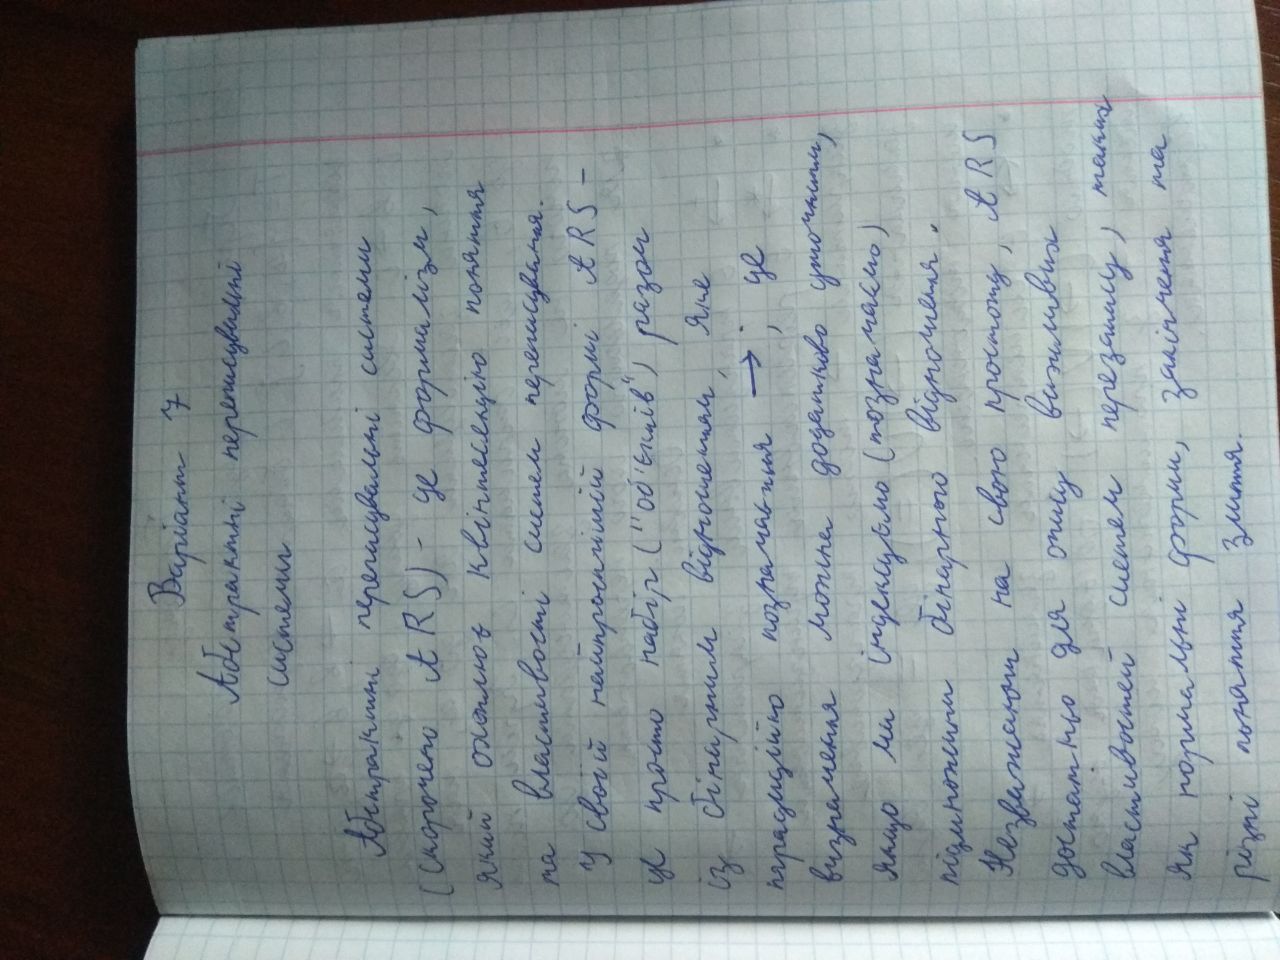 Варіант 7
Абстрактні переписувальні
системи
Абстрактні переписувальні системи
(скорочено ARS) - це формалізм,
який охоплює квінтесенцію поняття
та властивості систем переписування.
У своїй найпростішій формі ARS -
це просто набір ("об'єктів") разом
із бінарним відношенням, яке
традиційно позначається → ; це
визначення можна додатково уточнити,
якщо ми індексуємо (позначаємо)
підмножини бінарного відношення.
Незважаючи на свою простоту, ARS
достатньо для опису важливих
властивостей систем перезапису, таких
як нормальні форми, закінчення та
різні поняття злиття.